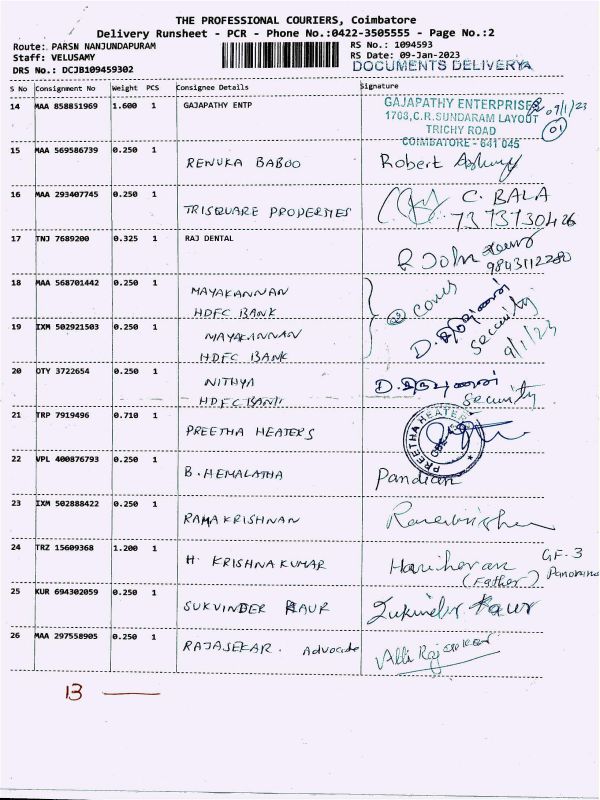 THE PROFESSIONAL COURIERS, Coimbatore
Delivery Runsheet - PCR - Phone No.:0422-3505555 - Page No.:2
Route: PARSN NANJUNDAPURAM
RS No.: 1094593
Staff: VELUSAMY
RS Date: 09-Jan-2023
DRS No.: DCJB109459302
DOCUMENTS DELIVERYA
S No Consignment No Weight PCS Consignee Details Signature
14 MAA 858851969 1.600 1 GAJAPATHY ENTP
GAJAPATHY ENTERPRISES 09/1/23
1708,C.R.SUNDARAM LAYOUT
TRICHY ROAD 01
COIMBATORE - 641 045
15 MAA 569586739 0.250 1
RENUKA BABOO Robert
16 MAA 293407745 0.250 1
TRISQUARE PROPERTIES C. BALA
7373730426
17 TNJ 7689200 0.325 1 RAJ DENTAL
R John
9843112280
18 MAA 568701442 0.250 1
MAYAKANNAN
HDFC BANK
19 IXM 502921503 0.250 1
MAYAKANNAN
HDFC BANK
02 COVES
security
9/1/23
20 OTY 3722654 0.250 1
NITHYA
HDFC BANK
security
21 TRP 7919496 0.710 1
PREETHA HEATERS
PREETHA HEATERS
22 VPL 400876793 0.250 1
B. HEMALATHA Pandian
23 IXM 502888422 0.250 1
RAMAKRISHNAN
24 TRZ 15609368 1.200 1
H. KRISHNAKUMAR Hariharan GF-3
(Father) Panorama
25 KUR 694302059 0.250 1
SUKVINDER KAUR Sukvinder Kaur
26 MAA 297558905 0.250 1
RAJASEKAR. Advocate
13